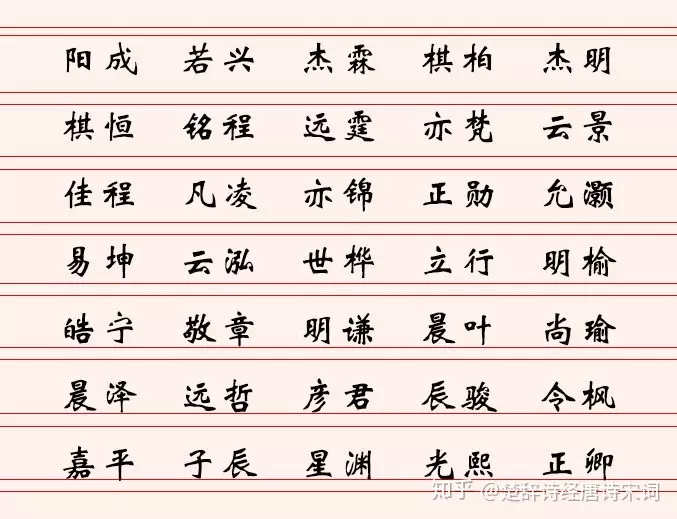 阳成 若兴 杰霖 棋柏 杰明
棋恒 铭程 远霆 亦梵 云景
佳程 凡凌 亦锦 正勋 允灏
易坤 云泓 世桦 立行 明榆
皓宁 敬章 明谦 晨叶 尚瑜
晨泽 远哲 彦君 辰骏 令枫
嘉平 子辰 星渊 光熙 正卿
知乎 @楚辞诗经唐诗宋词